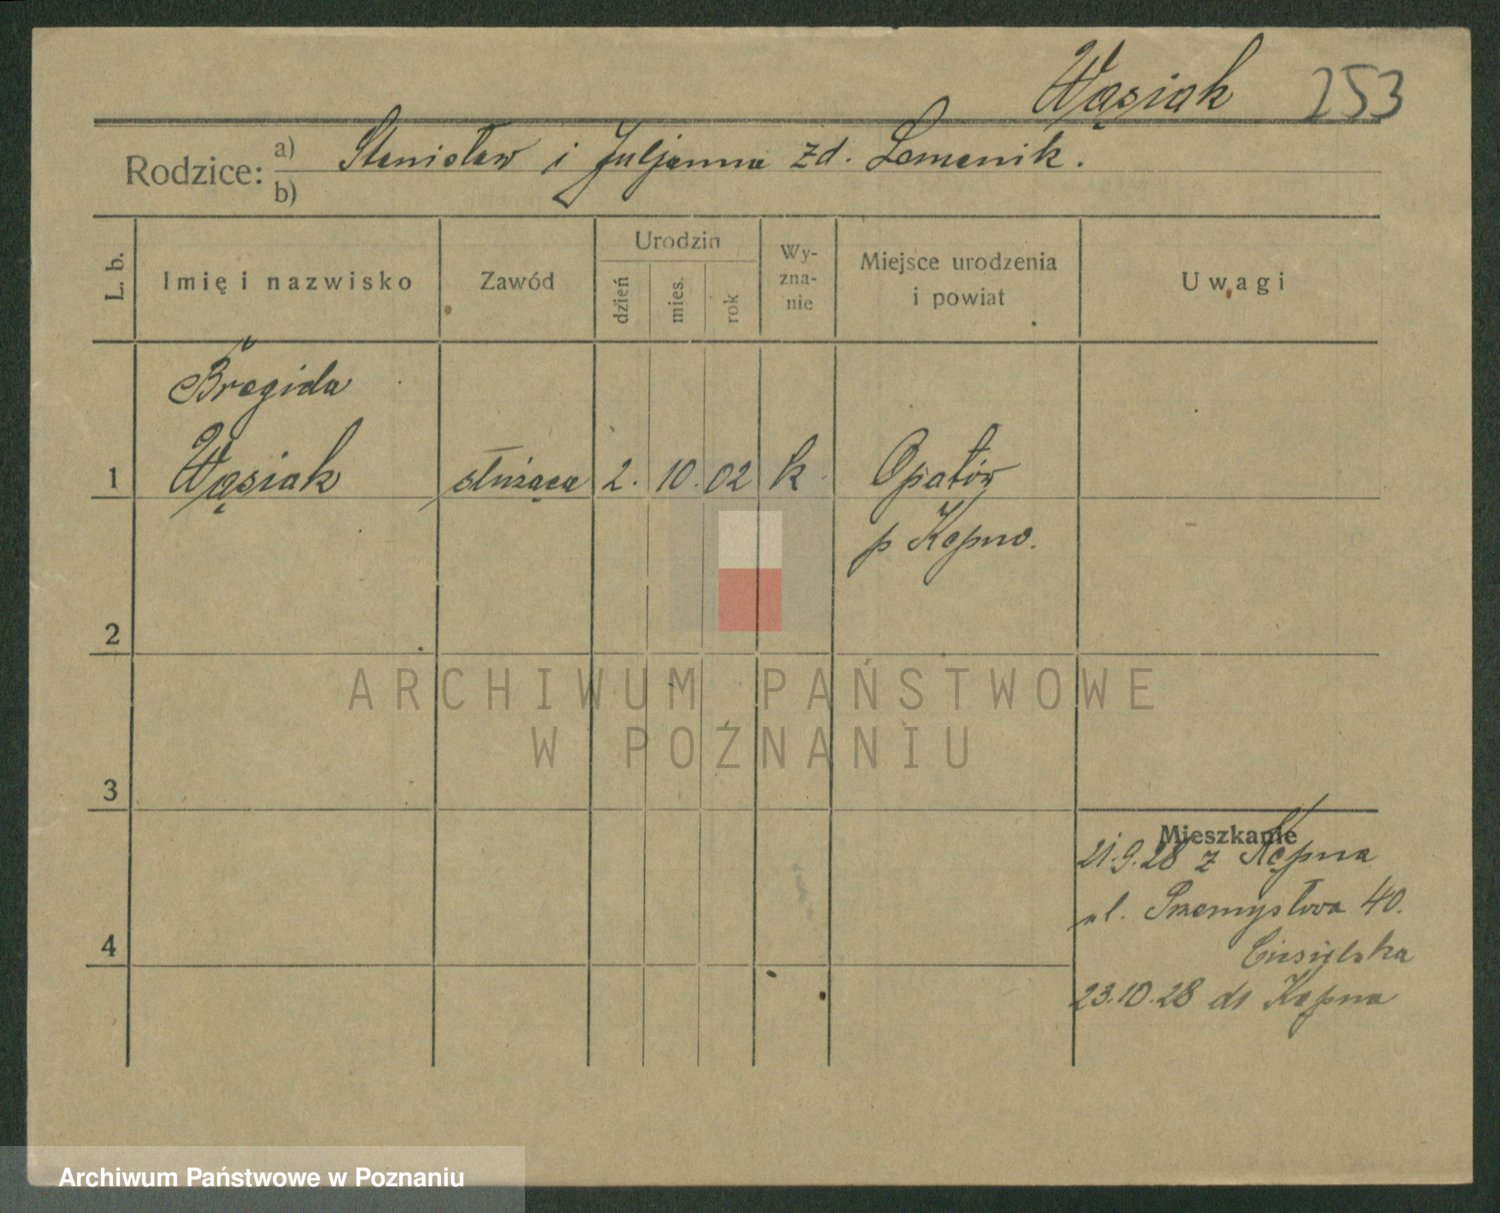 Wąsiak 253
Rodzice: a) Stanisław i Juljanna zd. Lemanik.
b)
L. b.
Imię i nazwisko
Zawód
Urodzin
dzień
mies.
rok
Wy-
zna-
nie
Miejsce urodzenia
i powiat
Uwagi
Bregida
1 Wąsiak służąca 2. 10. 02 k. Opatów
p Kępno.
2
ARCHIWUM PAŃSTWOWE
W POZNANIU
3
Mieszkanie
21.9.28 z Kępna
ul. Przemysłowa 40.
4
23.10.28 do Kępna
Archiwum Państwowe w Poznaniu